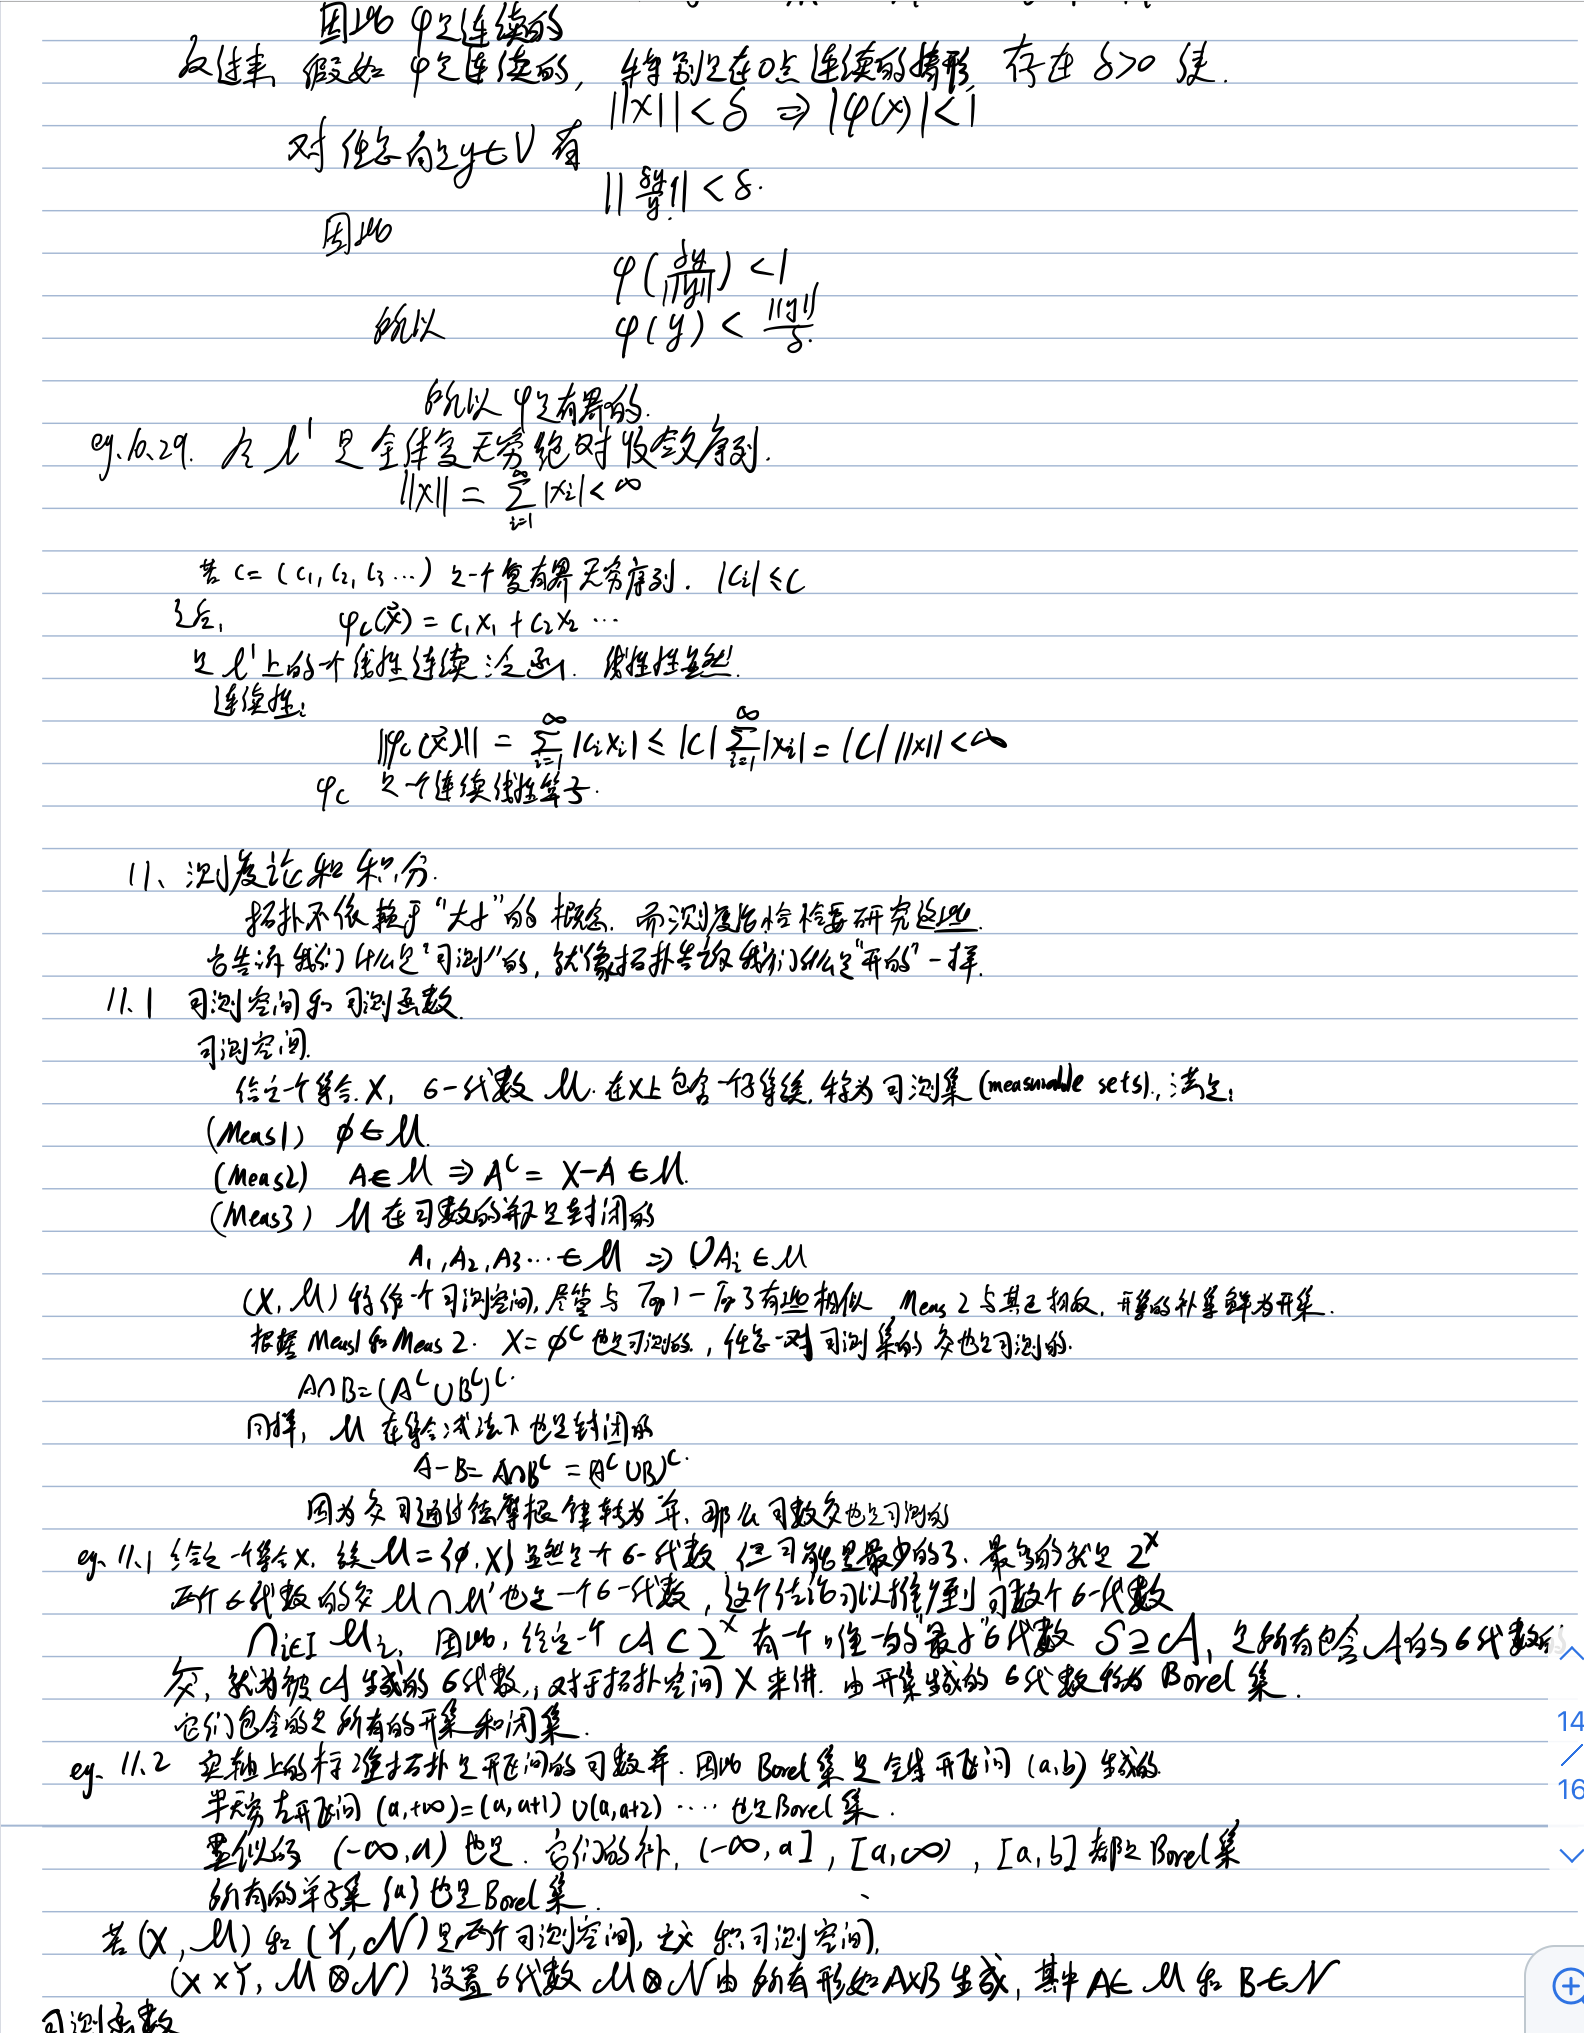 因此 φ是连续的
反过来 假如 φ是连续的, 特别是在0点连续的情形 存在 δ>0 使.
||x|| < δ ⇒ |φ(x)| < 1
对任意向量y∈V 有
||δy/y|| < δ.
因此
φ(δy/||y||) < 1
所以 φ(y) < ||y||/δ.
所以 φ是有界的.
eg.10.29. 令 l¹ 是全体复无穷绝对收敛序列.
||x|| = ∑_{i=1}^∞ |xi| < ∞
若 c = (c1, c2, c3 ...) 是一个复有界无穷序列. |ci| ≤ C
之后, φc(x⃗) = c1x1 + c2x2 ...
是 l¹上的一个线性连续泛函. 线性性显然.
连续性:
||φc(x⃗)|| = ∑_{i=1}^∞ |cixi| ≤ |C| ∑_{i=1}^∞ |xi| = |C| ||x|| < ∞
φc 是一个连续线性算子.
11、测度论和积分.
拓扑不依赖于“大小”的概念. 而测度论恰恰要研究这些.
它告诉我们什么是“可测”的, 就像拓扑告诉我们什么是“开的”一样.
11.1 可测空间和可测函数.
可测空间.
给定一个集合X, σ-代数 M. 在X上包含一个子集族, 称为可测集 (measurable sets)., 满足:
(Meas1) ϕ∈M.
(Meas2) A∈M ⇒ A^C = X-A ∈M.
(Meas3) M 在可数的并下是封闭的
A1, A2, A3... ∈ M ⇒ ∪Ai ∈ M
(X, M) 称作一个可测空间, 尽管与 Top1-Top3有些相似, Meas 2与其正相反, 开集的补集鲜为开集.
根据 Meas1和Meas 2. X=ϕ^C 也是可测的, 任意一对可测集的交也是可测的.
A∩B=(A^C∪B^C)^C.
同样, M 在集合减法下也是封闭的
A-B= A∩B^C =(A^C∪B)^C.
因为交可通过德摩根律转为并, 那么可数交也是可测的
eg. 11.1 给定一个集合X. 族M={ϕ,X}显然是个σ-代数 但可能是最少的了. 最多的就是 2^X
两个σ代数的交 M∩M'也是一个σ-代数, 这个结论可以推广到可数个σ-代数
∩_{i∈I} Mi. 因此, 给定一个 A⊂2^X 有一个唯一的“最小”σ代数 S⊇A, 是所有包含A的σ代数的
交, 就为被 A 生成的σ代数,, 对于拓扑空间X来讲. 由开集生成的σ代数称为 Borel 集.
它们包含的是所有的开集和闭集.
eg. 11.2 实轴上的标准拓扑是开区间的可数并. 因此 Borel 集是全体开区间 (a,b) 生成的
半无穷左开区间 (a,+∞)=(a,a+1)∪(a,a+2) .... 也是Borel集.
类似的 (-∞,a) 也是. 它们的补, (-∞,a], [a,∞), [a,b]都是Borel集
所有的单子集 {a}也是Borel集.
若(X, M) 和 (Y, N)是两个可测空间, 定义积可测空间,
(X×Y, M⊗N) 设置σ代数 M⊗N 由所有形如A×B生成, 其中 A∈ M 和 B∈N
可测函数
14
/
16